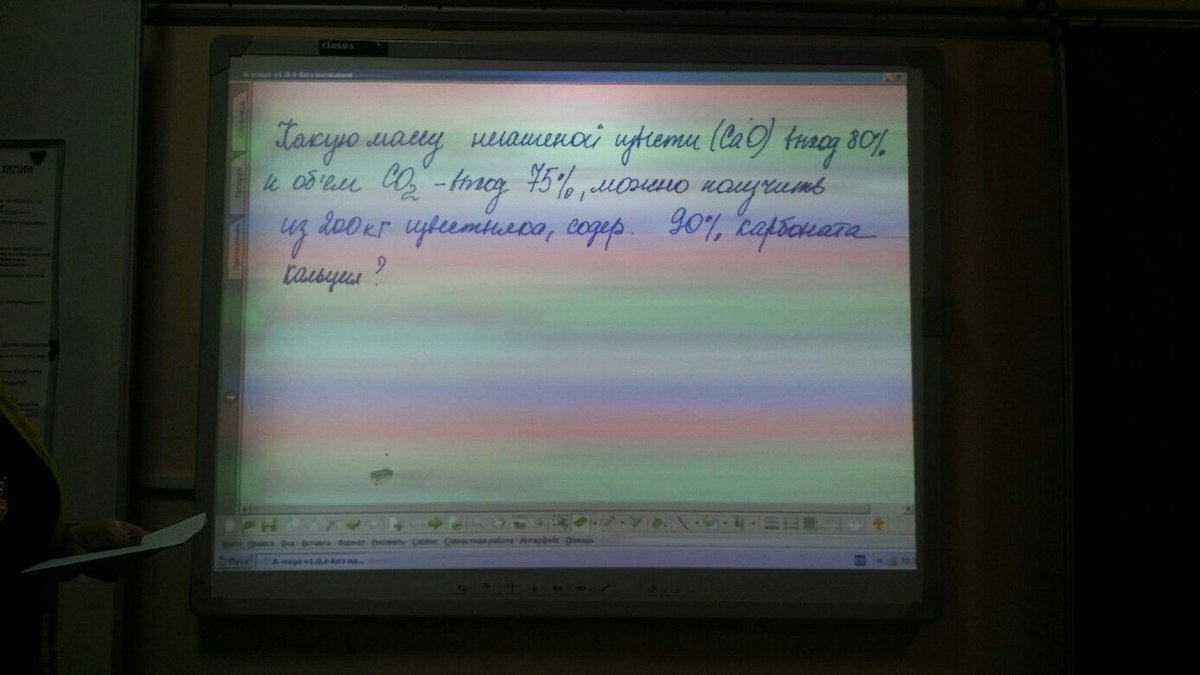 clasus
ХИМИИ
Какую массу негашеной извести (CaO) выход 80%
и об'ём CO2 - выход 75%, можно получить
из 200кг известняка, содер. 90% карбоната
кальция?
Правка Вид Вставка Формат Рисовать Сервис Совместная работа Интерфейс Помощь
Пуск